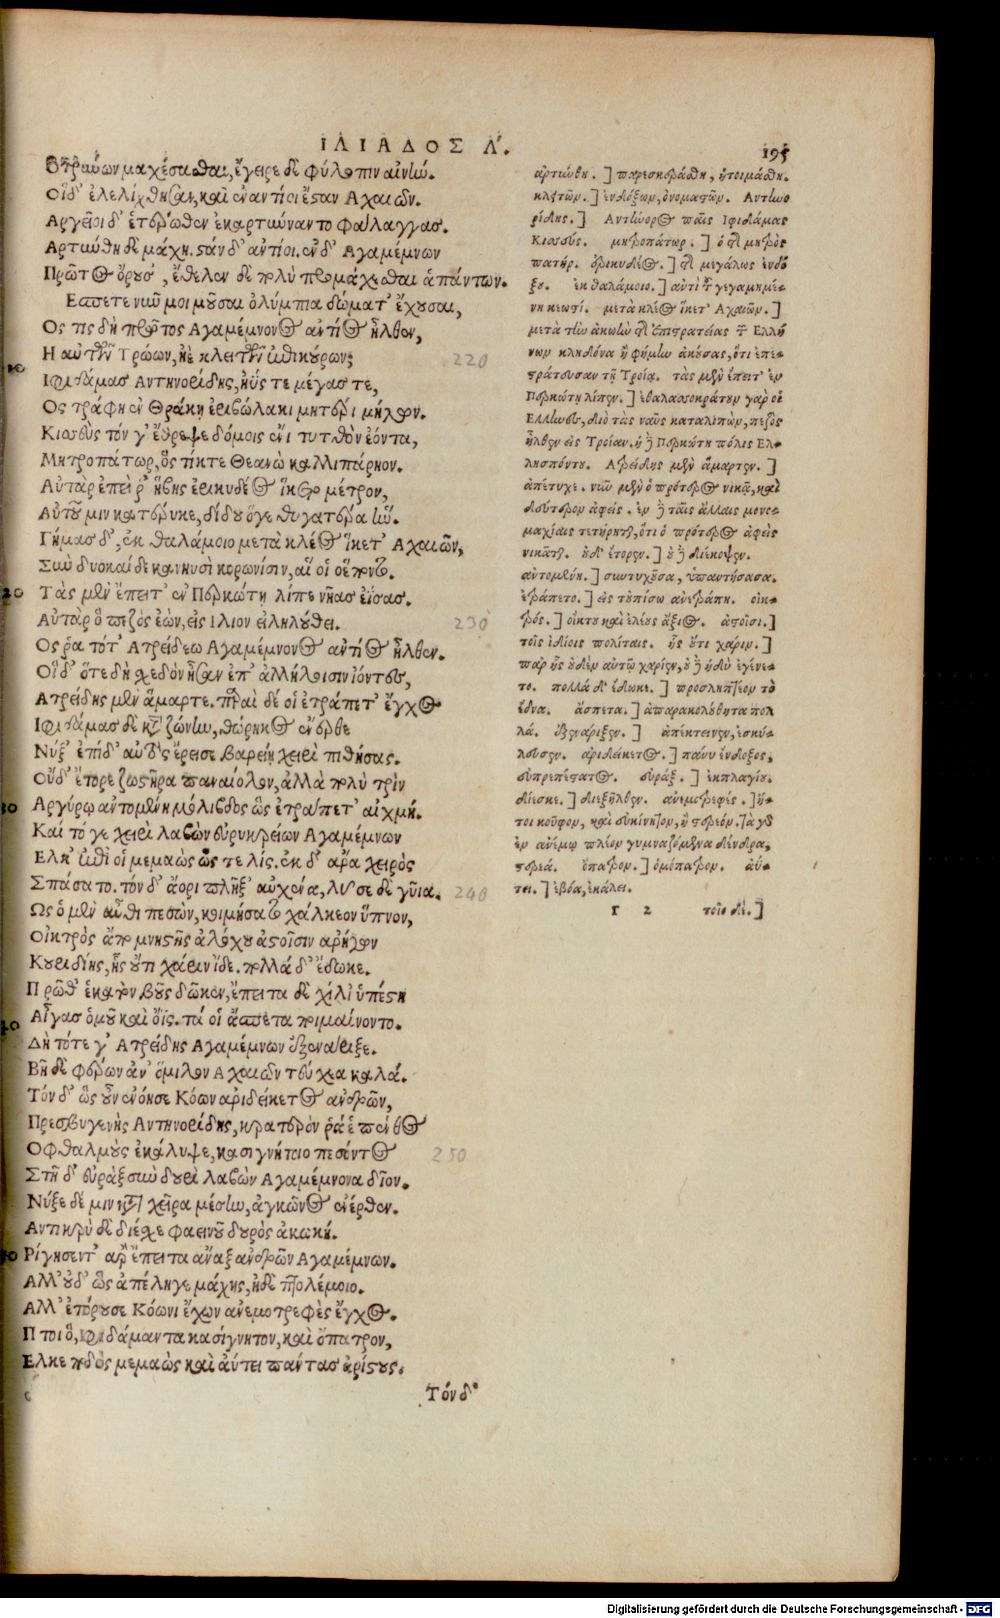 ΙΛΙΑΔΟΣ Λ.
195
Οτρύνων μαχέσασθαι, ἔγειρε δὲ φύλοπιν αἰνήν.
Οἱ δ' ἐλελίχθησαν, καὶ ἐναντίοι ἔσταν Αχαιῶν.
Αργεῖοι δ' ἑτέρωθεν ἐκαρτύναντο φάλαγγας.
Αρτύνθη δὲ μάχη. στὰν δ' ἀντίοι. ἐν δ' Αγαμέμνων
Πρῶτος ὄρουσ', ἔθελεν δὲ πολὺ προμάχεσθαι ἁπάντων.
Εσπετε νῦν μοι μοῦσαι ὀλύμπια δώματ' ἔχουσαι,
Ος τις δὴ πρῶτος Αγαμέμνονος ἀντίος ἦλθεν,
Η αὐτῶν Τρώων, ἠὲ κλειτῶν ἐπικούρων;
220
Ιφιδάμας Αντηνορίδης, ἠΰς τε μέγας τε,
Ος τράφη ἐν Θρᾴκῃ ἐριβώλακι μητέρι μήλων.
Κισσεὺς τόν γ' ἔθρεψε δόμοις ἔνι τυτθὸν ἐόντα,
Μητροπάτωρ, ὃς τίκτε Θεανὼ καλλιπάρηον.
Αὐτὰρ ἐπεί ῥ' ἥβης ἐρικυδέος ἵκετο μέτρον,
Αὐτοῦ μιν κατέρυκε, δίδου ὅγε θυγατέρα ἥν.
Γήμας δ', ἐκ θαλάμοιο μετὰ κλέος ἵκετ' Αχαιῶν,
Σὺν δυοκαίδεκα νηυσὶ κορωνίσιν, αἵ οἱ ἕποντο.
20 Τὰς μὲν ἔπειτ' ἐν Περκώτῃ λίπε νῆας ἐΐσας.
Αὐτὰρ ὁ πεζὸς ἐὼν, εἰς Ιλιον εἰληλούθει.
230
Ος ῥα τότ' Ατρείδεω Αγαμέμνονος ἀντίος ἦλθεν.
Οἱ δ' ὅτε δὴ σχεδὸν ἦσαν ἐπ' ἀλλήλοισιν ἰόντες,
Ατρείδης μὲν ἅμαρτε. παραὶ δέ οἱ ἐτράπετ' ἔγχος
Ιφιδάμας δὲ κατὰ ζώνην, θώρηκος ἔνερθε
Νύξ' ἐπὶ δ' αὐτὸς ἔρεισε βαρείῃ χειρὶ πιθήσας.
Οὐδ' ἔτορε ζωστῆρα παναίολον, ἀλλὰ πολὺ πρὶν
30 Αργύρῳ ἀντομένη μόλιβδος ὣς ἐτράπετ' αἰχμή.
Καὶ τό γε χειρὶ λαβὼν εὐρυκρείων Αγαμέμνων
Ελκ' ἐπὶ οἷ μεμαὼς ὥς τε λίς. ἐκ δ' ἄρα χειρὸς
Σπάσατο. τὸν δ' ἄορι πλῆξ' αὐχένα, λῦσε δὲ γῦια.
240
Ως ὁ μὲν αὖθι πεσὼν, κοιμήσατο χάλκεον ὕπνον,
Οἰκτρὸς ἄπο μνηστῆς ἀλόχου ἀστοῖσιν ἀρήγων
Κουριδίης, ἧς οὔτι χάριν ἴδε. πολλὰ δ' ἔδωκε.
Πρῶθ' ἑκατὸν βοῦς δῶκεν, ἔπειτα δὲ χίλι' ὑπέστη
40 Αἶγας ὁμοῦ καὶ ὄϊς. τά οἱ ἄσπετα ποιμαίνοντο.
Δὴ τότε γ' Ατρείδης Αγαμέμνων ἐξενάριξε.
Βῆ δὲ φέρων ἀν' ὅμιλον Αχαιῶν τεύχεα καλά.
Τὸν δ' ὡς οὖν ἐνόησε Κόων ἀριδείκετος ἀνδρῶν,
Πρεσβυγενὴς Αντηνορίδης, κρατερὸν ῥά ἑ πένθος
Οφθαλμοὺς ἐκάλυψε, κασιγνήτοιο πεσόντος
250
Στῆ δ' εὐρὰξ σὺν δουρὶ λαβὼν Αγαμέμνονα δῖον.
Νύξε δέ μιν κατὰ χεῖρα μέσην, ἀγκῶνος ἔνερθεν.
Αντικρὺ δὲ διέσχε φαεινοῦ δουρὸς ἀκωκή.
50 Ρίγησέν τ' ἄρ' ἔπειτα ἄναξ ἀνδρῶν Αγαμέμνων.
Αλλ' οὐδ' ὣς ἀπέληγε μάχης, ἠδὲ πτολέμοιο.
Αλλ' ἐπόρουσε Κόωνι ἔχων ἀνεμοτρεφὲς ἔγχος.
Ητοι ὁ, Ιφιδάμαντα κασίγνητον, καὶ ὄπατρον,
Ελκε ποδὸς μεμαὼς καὶ ἀΰτει πάντας ἀρίστους.
Τὸν δ'
ἀρτύνθη.] παρεσκευάσθη, ἡτοιμάσθη.
κλειτῶν.] ἐνδόξων, ὀνομαστῶν. Αντηνο
ρίδης.] Αντήνορος παῖς Ιφιδάμας
Κισσεύς. μητροπάτωρ.] ὁ τῆς μητρὸς
πατήρ. ἐρικυδέος.] τῆς μεγάλως ἐνδό
ξου. ἐκ θαλάμοιο.] ἀντὶ τοῦ γεγαμημέ-
νη νεωστί. μετὰ κλέος ἵκετ' Αχαιῶν.]
μετὰ τὴν ἀκοὴν τῆς ἐπιστρατείας τῶν Ελλή
νων κληδόνα ἢ φήμην ἀκούσας, ὅτι ἐπε-
στράτευσαν τῇ Τροίᾳ. τὰς μὲν ἔπειτ' ἐν
Περκώτῃ λίπεν.] ἐθαλασσοκράτουν γὰρ οἱ
Ελληνες, διὸ τὰς ναῦς καταλιπὼν, πεζὸς
ἦλθεν εἰς Τροίαν. ἡ δὲ Περκώτη πόλις Ελ-
λησπόντου. Ατρείδης μὲν ἅμαρτεν.]
ἀπέτυχε. νῦν μὲν ὁ πρότερος νικᾷ, καὶ
δεύτερον ἀφείς. ἐν δὲ ταῖς ἄλλαις μονο-
μαχίαις τετήρηται, ὅτι ὁ πρότερος ἀφεὶς
νικᾶται. οὐδ' ἔτορεν.] οὐ δὲ διέκοψεν.
ἀντομένη.] συντυχοῦσα, ὑπαντήσασα.
ἐτράπετο.] εἰς τοὐπίσω ἀνετράπη. οἰκ-
τρός.] οἴκτου καὶ ἐλέους ἄξιος. ἀστοῖσι.]
τοῖς ἰδίοις πολίταις. ἧς οὔτι χάριν.]
παρ' ἧς οὐδὲν αὐτῷ χαρίεν, οὐ δὲ ἡδὺ ἐγένε-
το. πολλὰ δ' ἔδωκε.] προσληπτέον τὸ
ἕδνα. ἄσπετα.] ἀπαρακολούθητα πολ
λά. ἐξενάριξεν.] ἀπέκτεινεν, ἐσκύ-
λευσεν. ἀριδείκετος.] πάνυ ἔνδοξος,
εὐπρεπέστατος. εὐράξ.] ἐκπλαγίου.
διέσχε.] διεξῆλθεν. ἀνεμοτρεφές.] ἤ-
τοι κοῦφον, καὶ εὐκίνητον, ἢ στερεόν. τὰ γὰρ
ἐν ἀνέμῳ πλέον γυμναζόμενα δένδρα,
στερεά. ὄπατρον.] ὁμόπατρον. ἀΰ-
τει.] ἐβόα, ἐκάλει.
r 2
τοῖο δέ.]
Digitalisierung gefördert durch die Deutsche Forschungsgemeinschaft - DFG